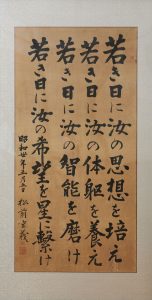 若き日に汝の思想を培え
若き日に汝の体躯を養え
若き日に汝の智能を磨け
若き日に汝の希望を星に繋け
昭和卅年五月五日
松翁貞義